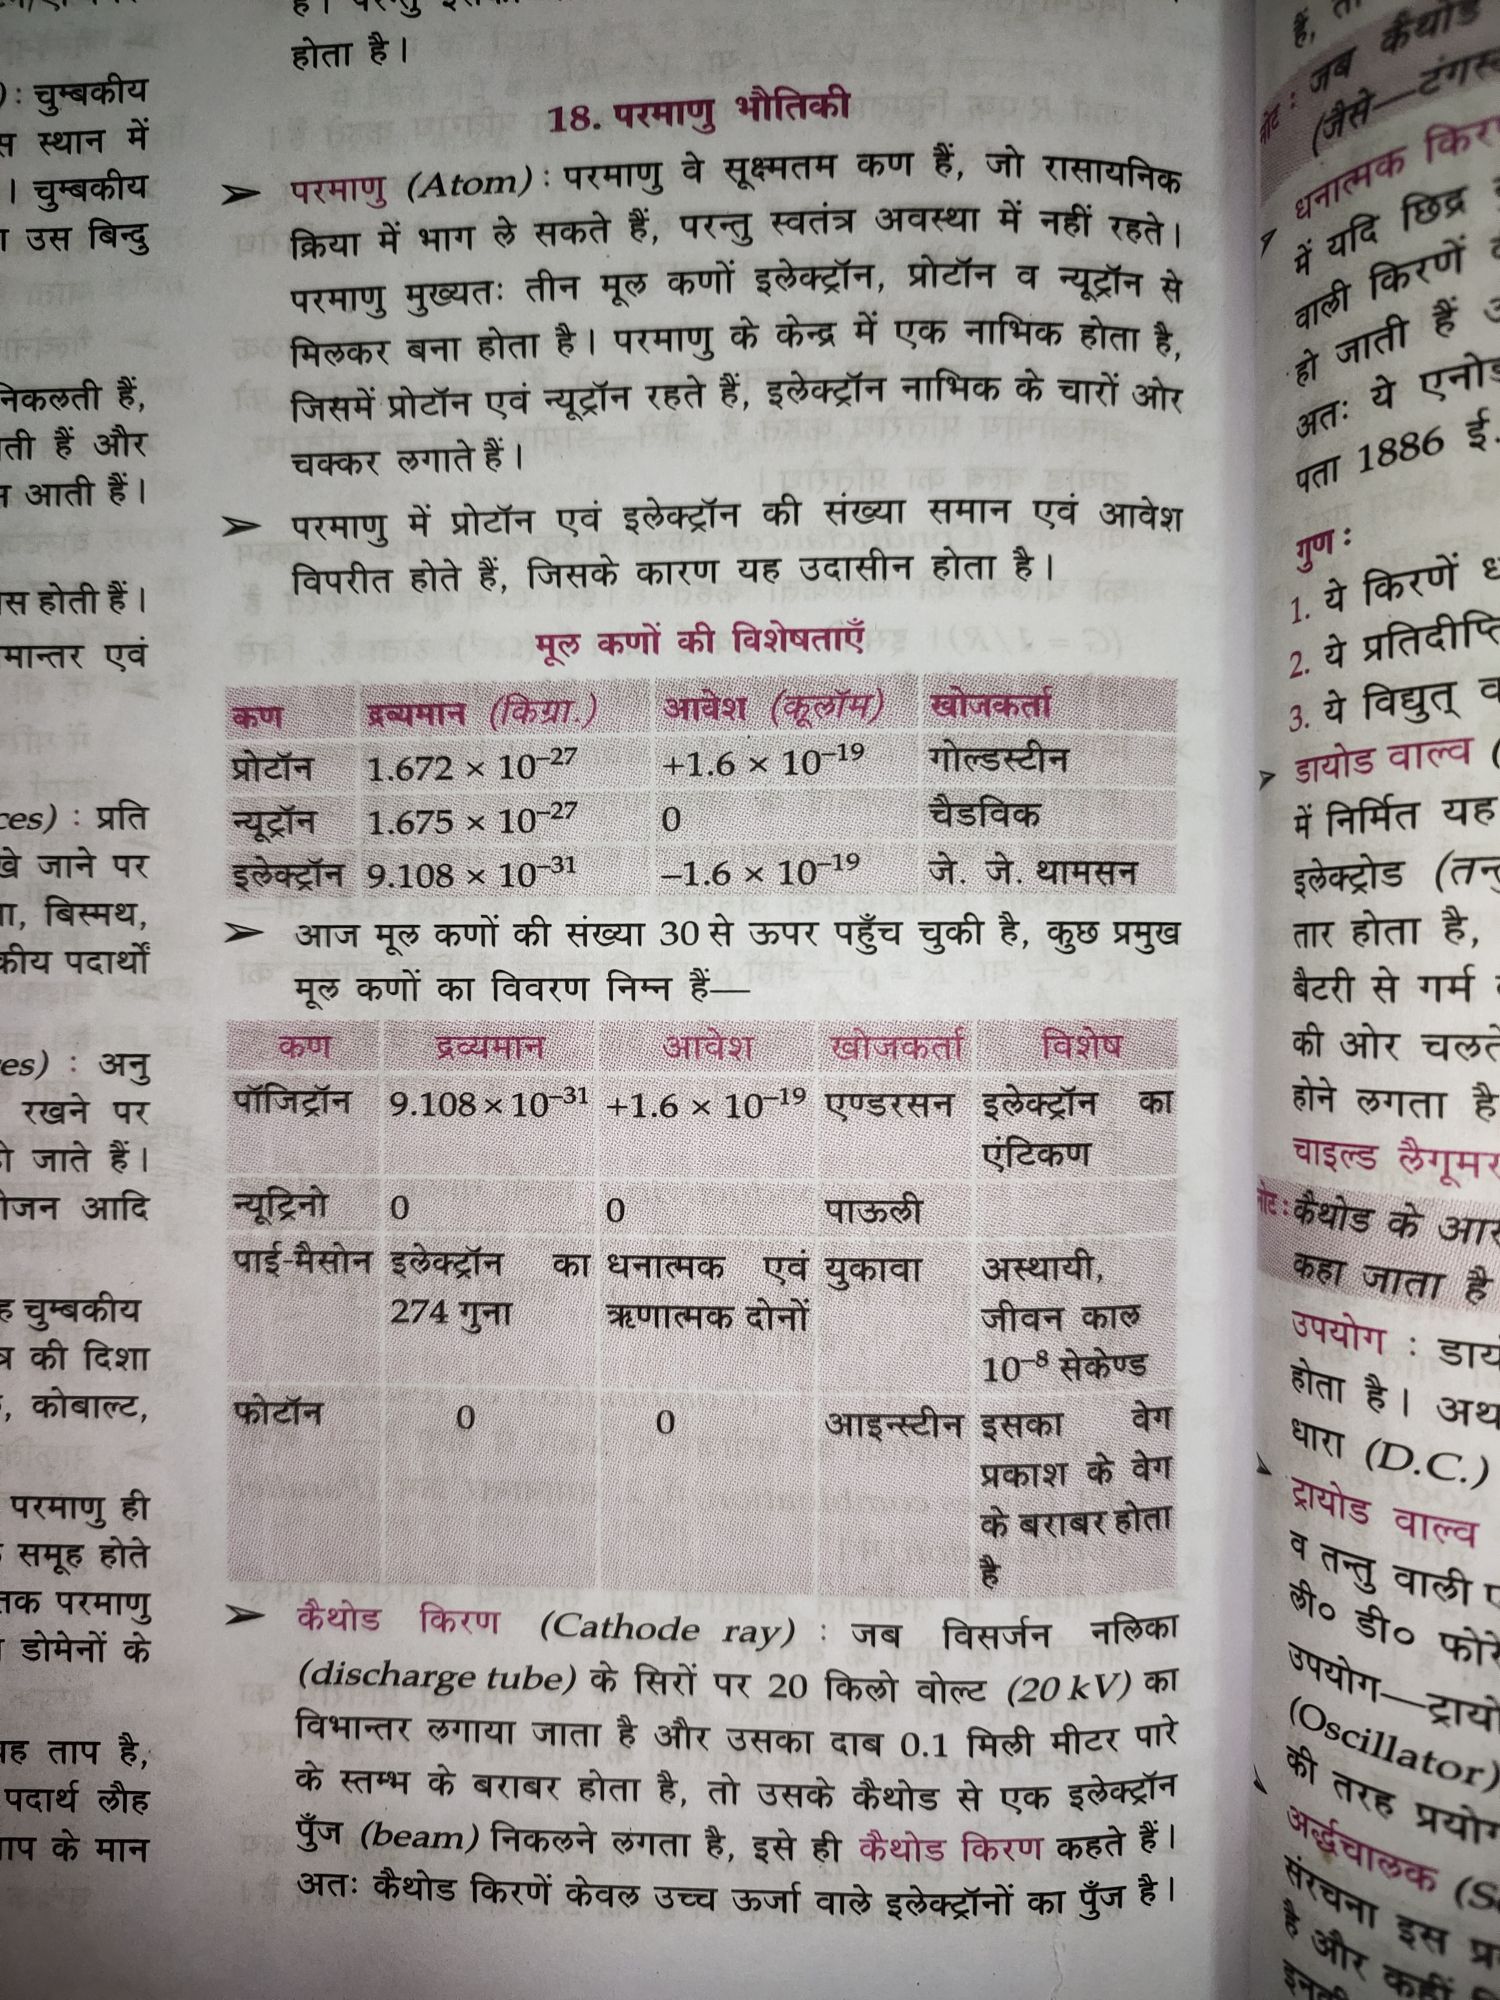 होता है।
18. परमाणु भौतिकी
➤ परमाणु (Atom) : परमाणु वे सूक्ष्मतम कण हैं, जो रासायनिक
क्रिया में भाग ले सकते हैं, परन्तु स्वतंत्र अवस्था में नहीं रहते।
परमाणु मुख्यतः तीन मूल कणों इलेक्ट्रॉन, प्रोटॉन व न्यूट्रॉन से
मिलकर बना होता है। परमाणु के केन्द्र में एक नाभिक होता है,
जिसमें प्रोटॉन एवं न्यूट्रॉन रहते हैं, इलेक्ट्रॉन नाभिक के चारों ओर
चक्कर लगाते हैं।
➤ परमाणु में प्रोटॉन एवं इलेक्ट्रॉन की संख्या समान एवं आवेश
विपरीत होते हैं, जिसके कारण यह उदासीन होता है।
मूल कणों की विशेषताएँ
कण द्रव्यमान (किग्रा.) आवेश (कूलॉम) खोजकर्ता
प्रोटॉन 1.672 × 10⁻²⁷ +1.6 × 10⁻¹⁹ गोल्डस्टीन
न्यूट्रॉन 1.675 × 10⁻²⁷ 0 चैडविक
इलेक्ट्रॉन 9.108 × 10⁻³¹ –1.6 × 10⁻¹⁹ जे. जे. थामसन
➤ आज मूल कणों की संख्या 30 से ऊपर पहुँच चुकी है, कुछ प्रमुख
मूल कणों का विवरण निम्न हैं—
कण द्रव्यमान आवेश खोजकर्ता विशेष
पॉजिट्रॉन 9.108 × 10⁻³¹ +1.6 × 10⁻¹⁹ एण्डरसन इलेक्ट्रॉन का
एंटिकण
न्यूट्रिनो 0 0 पाऊली
पाई-मैसोन इलेक्ट्रॉन का धनात्मक एवं युकावा अस्थायी,
274 गुना ऋणात्मक दोनों जीवन काल
10⁻⁸ सेकेण्ड
फोटॉन 0 0 आइन्स्टीन इसका वेग
प्रकाश के वेग
के बराबर होता
है
➤ कैथोड किरण (Cathode ray) : जब विसर्जन नलिका
(discharge tube) के सिरों पर 20 किलो वोल्ट (20 kV) का
विभान्तर लगाया जाता है और उसका दाब 0.1 मिली मीटर पारे
के स्तम्भ के बराबर होता है, तो उसके कैथोड से एक इलेक्ट्रॉन
पुँज (beam) निकलने लगता है, इसे ही कैथोड किरण कहते हैं।
अतः कैथोड किरणें केवल उच्च ऊर्जा वाले इलेक्ट्रॉनों का पुँज है।
: चुम्बकीय
स्थान में
। चुम्बकीय
उस बिन्दु
निकलती हैं,
हैं और
आती हैं।
होती हैं।
एवं
: प्रति
जाने पर
बिस्मथ,
पदार्थों
: अनु
रखने पर
जाते हैं।
आदि
चुम्बकीय
की दिशा
कोबाल्ट,
परमाणु ही
समूह होते
परमाणु
डोमेनों के
ताप है,
पदार्थ लौह
के मान
जब कैथोड
(जैसे—
धनात्मक
में यदि छिद्र
वाली किरणें
हो जाती हैं
अतः ये
पता 1886 ई.
गुण :
1. ये किरणें
2. ये
3. ये विद्युत्
डायोड वाल्व
में निर्मित यह
इलेक्ट्रोड
तार होता है,
बैटरी से गर्म
की ओर
होने लगता है
चाइल्ड
कैथोड के
कहा जाता है
उपयोग :
होता है।
धारा (D.C.)
ट्रायोड वाल्व
व तन्तु वाली
ली० डी०
उपयोग—
(Oscillator)
की तरह
अर्द्धचालक
संरचना इस
है और कहीं